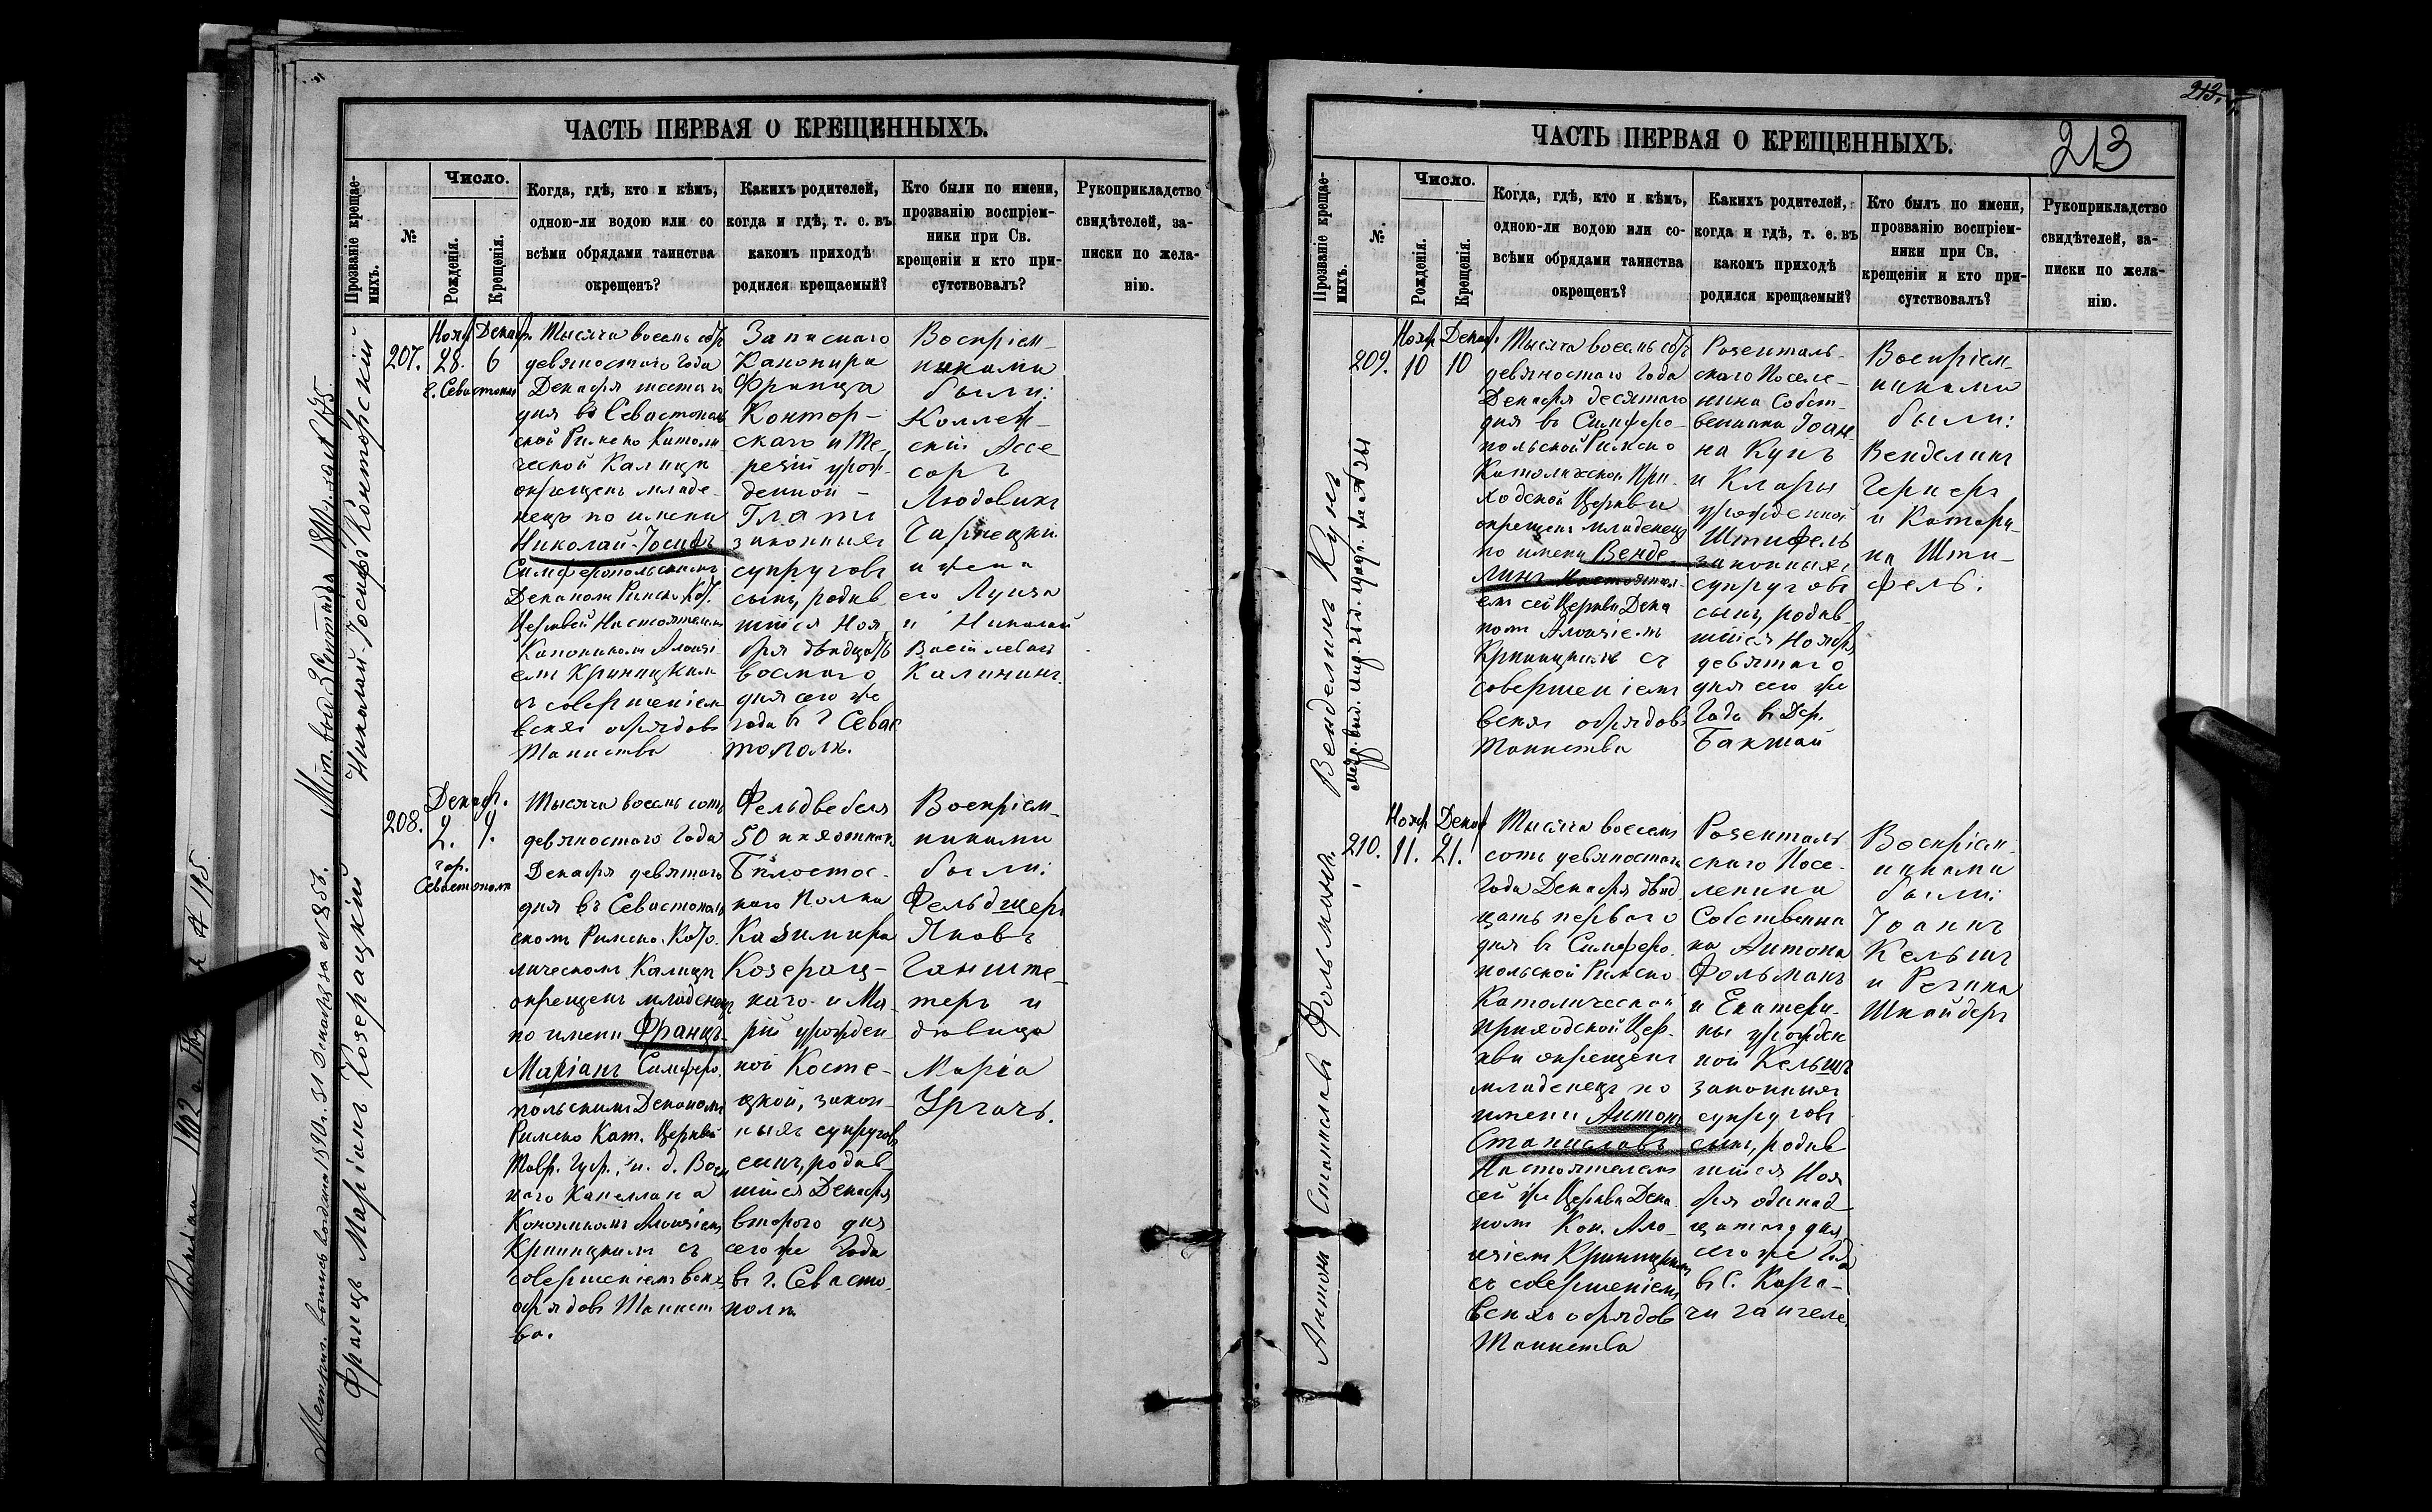 ЧАСТЬ ПЕРВАЯ О КРЕЩЕННЫХЪ.
Прозваніе крещае-
мыхъ.
№
Число.
Рожденія.
Крещенія.
Когда, гдѣ, кто и кѣмъ,
одною-ли водою или со
всѣми обрядами таинства
окрещенъ?
Какихъ родителей,
когда и гдѣ, т. е. въ
какомъ приходѣ
родился крещаемый?
Кто были по имени,
прозванію воспріем-
ники при Св.
крещеніи и кто при-
сутствовалъ?
Рукоприкладство
свидѣтелей, за-
писки по жела-
нію.
Николай-Іосифъ Конторскій
207.
Нояб. Декабр.
28. 6
г. Севастополь
Тысяча восемь сотъ
девяностаго года
Декабря шестаго
дня въ Севастополь
ской Римско Католи
ческой Калици
окрещенъ младе-
нецъ по имени
Николай-Іосифъ
Симферопольскимъ
Деканомъ Римско Кат.
Церквей Настоятелем
Каноникомъ Алоизі
емъ Криницкимъ
съ совершеніем
всехъ обрядовъ
Таинства
Запаснаго
Канонира
Франца
Контор-
скаго и Те-
резіи урож-
денной -
Глати
законныхъ
супруговъ
сынъ, родив
шійся Ноя
бря двадцать
восьмаго
дня сего же
года въ г Севас
тополѣ.
Воспріем-
никами
были:
Коллеж-
скій Ассе
соръ
Людовикъ
Чарнецкій
и жена
его Луиза
и Николай
Васильевъ
Калининъ.
Францъ Маріанъ Козерацкій
208.
Декабр.
2. 9.
гор.
Севастополь
Тысяча восемь сотъ
девяностаго года
Декабря девятаго
дня въ Севастополь
скомъ Римско-Като.
лическомъ Калици
окрещенъ младенец
по имени Францъ-
Маріанъ Симферо.
польскимъ Деканомъ
Римско Кат. Церквей
Тавр. Губ., и. д. Воен
наго Капеллана
Каноникомъ Алоизіем
Криницкимъ съ
совершеніемъ всехъ
обрядовъ Таинст
ва.
Фельдвебеля
50 пехотнаго
Бѣлосток-
каго Полка
Казимира
Козерац-
каго и Ма
ріи урожден
ной Косте-
цкой, закон-
ныхъ супруговъ
сынъ, родив-
шійся Декабря
втораго дня
сего же года
въ г. Севасто
полѣ
Воспріем-
никами
были:
Фельдшеръ
Яковъ
Ганште-
теръ и
дѣвица
Марія
Ургачъ.
213
ЧАСТЬ ПЕРВАЯ О КРЕЩЕННЫХЪ.
213
Прозваніе крещае-
мыхъ.
№
Число.
Рожденія.
Крещенія.
Когда, гдѣ, кто и кѣмъ,
одною-ли водою или со-
всѣми обрядами таинства
окрещенъ?
Какихъ родителей,
когда и гдѣ, т. е. въ
какомъ приходѣ
родился крещаемый?
Кто былъ по имени,
прозванію воспріем-
ники при Св.
крещеніи и кто при-
сутствовалъ?
Рукоприкладство
свидѣтелей, за-
писки по жела-
нію.
Венделинъ Кунъ
209.
Нояб. Декаб.
10 10
Тысяча восемь сотъ
девяностаго года
Декабря десятаго
дня въ Симферо-
польской Римско
Католической При
ходской Церкви
окрещенъ младенецъ
по имени Венде-
линъ Настоятел-
емъ сей Церкви Дека
номъ Алоизіемъ
Криницкимъ съ
совершеніемъ
всехъ обрядовъ
Таинства
Розенталь-
скаго Поселе-
нина Собст-
венника Іоан-
на Кунъ
и Клары
урожденной
Штифель
законныхъ
супруговъ
сынъ, родив-
шійся Ноября
девятаго
дня сего же
года въ Дер.
Бакшай
Воспріем-
никами
были:
Венделинъ
Гернеръ
и Катари-
на Шти-
фель.
Антонъ Станиславъ Фольманъ
210.
Нояб Декаб
11. 21.
Тысяча восемь
сотъ девяностаго
года Декабря двад
цать перваго
дня въ Симферо.
польской Римско
Католической
приходской Цер-
кви окрещенъ
младенецъ по
имени Антонъ
Станиславъ
Настоятелемъ
сей же Церкви Дека
номъ Кан. Ало-
изіемъ Криницкимъ
съ совершеніемъ
всехъ обрядовъ
Таинства
Розенталь
скаго Посе-
ленина
Собственни
ка Антона
Фольманъ
и Екатери-
ны урожден
ной Кельшъ
законныхъ
супруговъ
сынъ, родив
шійся Ноя
бря одинад
цатаго дня
сего же года
въ С. Кара-
чи гангеле.
Воспріем-
никами
были:
Іоаннъ
Кельшъ
и Регина
Шнайдеръ